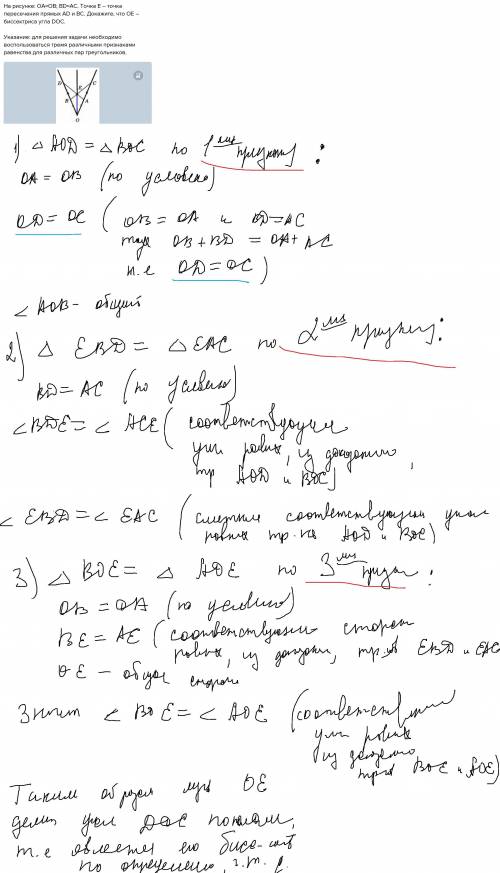 На рисунке: OA=OB; BD=AC. Точка E – точка
пересечения прямых AD и BC. Докажите, что OE –
биссектриса угла DOC.
Указание: для решения задачи необходимо
воспользоваться тремя различными признаками
равенства для различных пар треугольников.
D C
E
B A
O
1) △ AOD = △ BOC по 1ᵐʸ признаку:
OA = OB (по условию)
OD = OC ( OB = OA и BD = AC
тогда OB + BD = OA + AC
т.е OD = OC )
∠ AOB – общий
2) △ EBD = △ EAC по 2ᵐʸ признаку:
BD = AC (по условию)
∠BDE = ∠ ACE ( соответствующие
углы равных, из доказанного,
тр AOD и BOC)
∠ EBD = ∠ EAC (смежные соответствующим углам
равных тр-ка AOD и BOC)
3) △ BOE = △ AOE по 3ᵐʸ признаку:
OB = OA (по условию)
BE = AE (соответствующие стороны
равных, из доказан, тр-ов EBD и EAC
OE – общая сторона
Значит ∠ BOE = ∠ AOE (соответственные
углы равных
из доказанного
тр-ов BOE и AOE)
Таким образом луч OE
делит угол DOC пополам,
т.е является его биссе-сой
по определению, ч.т.д.